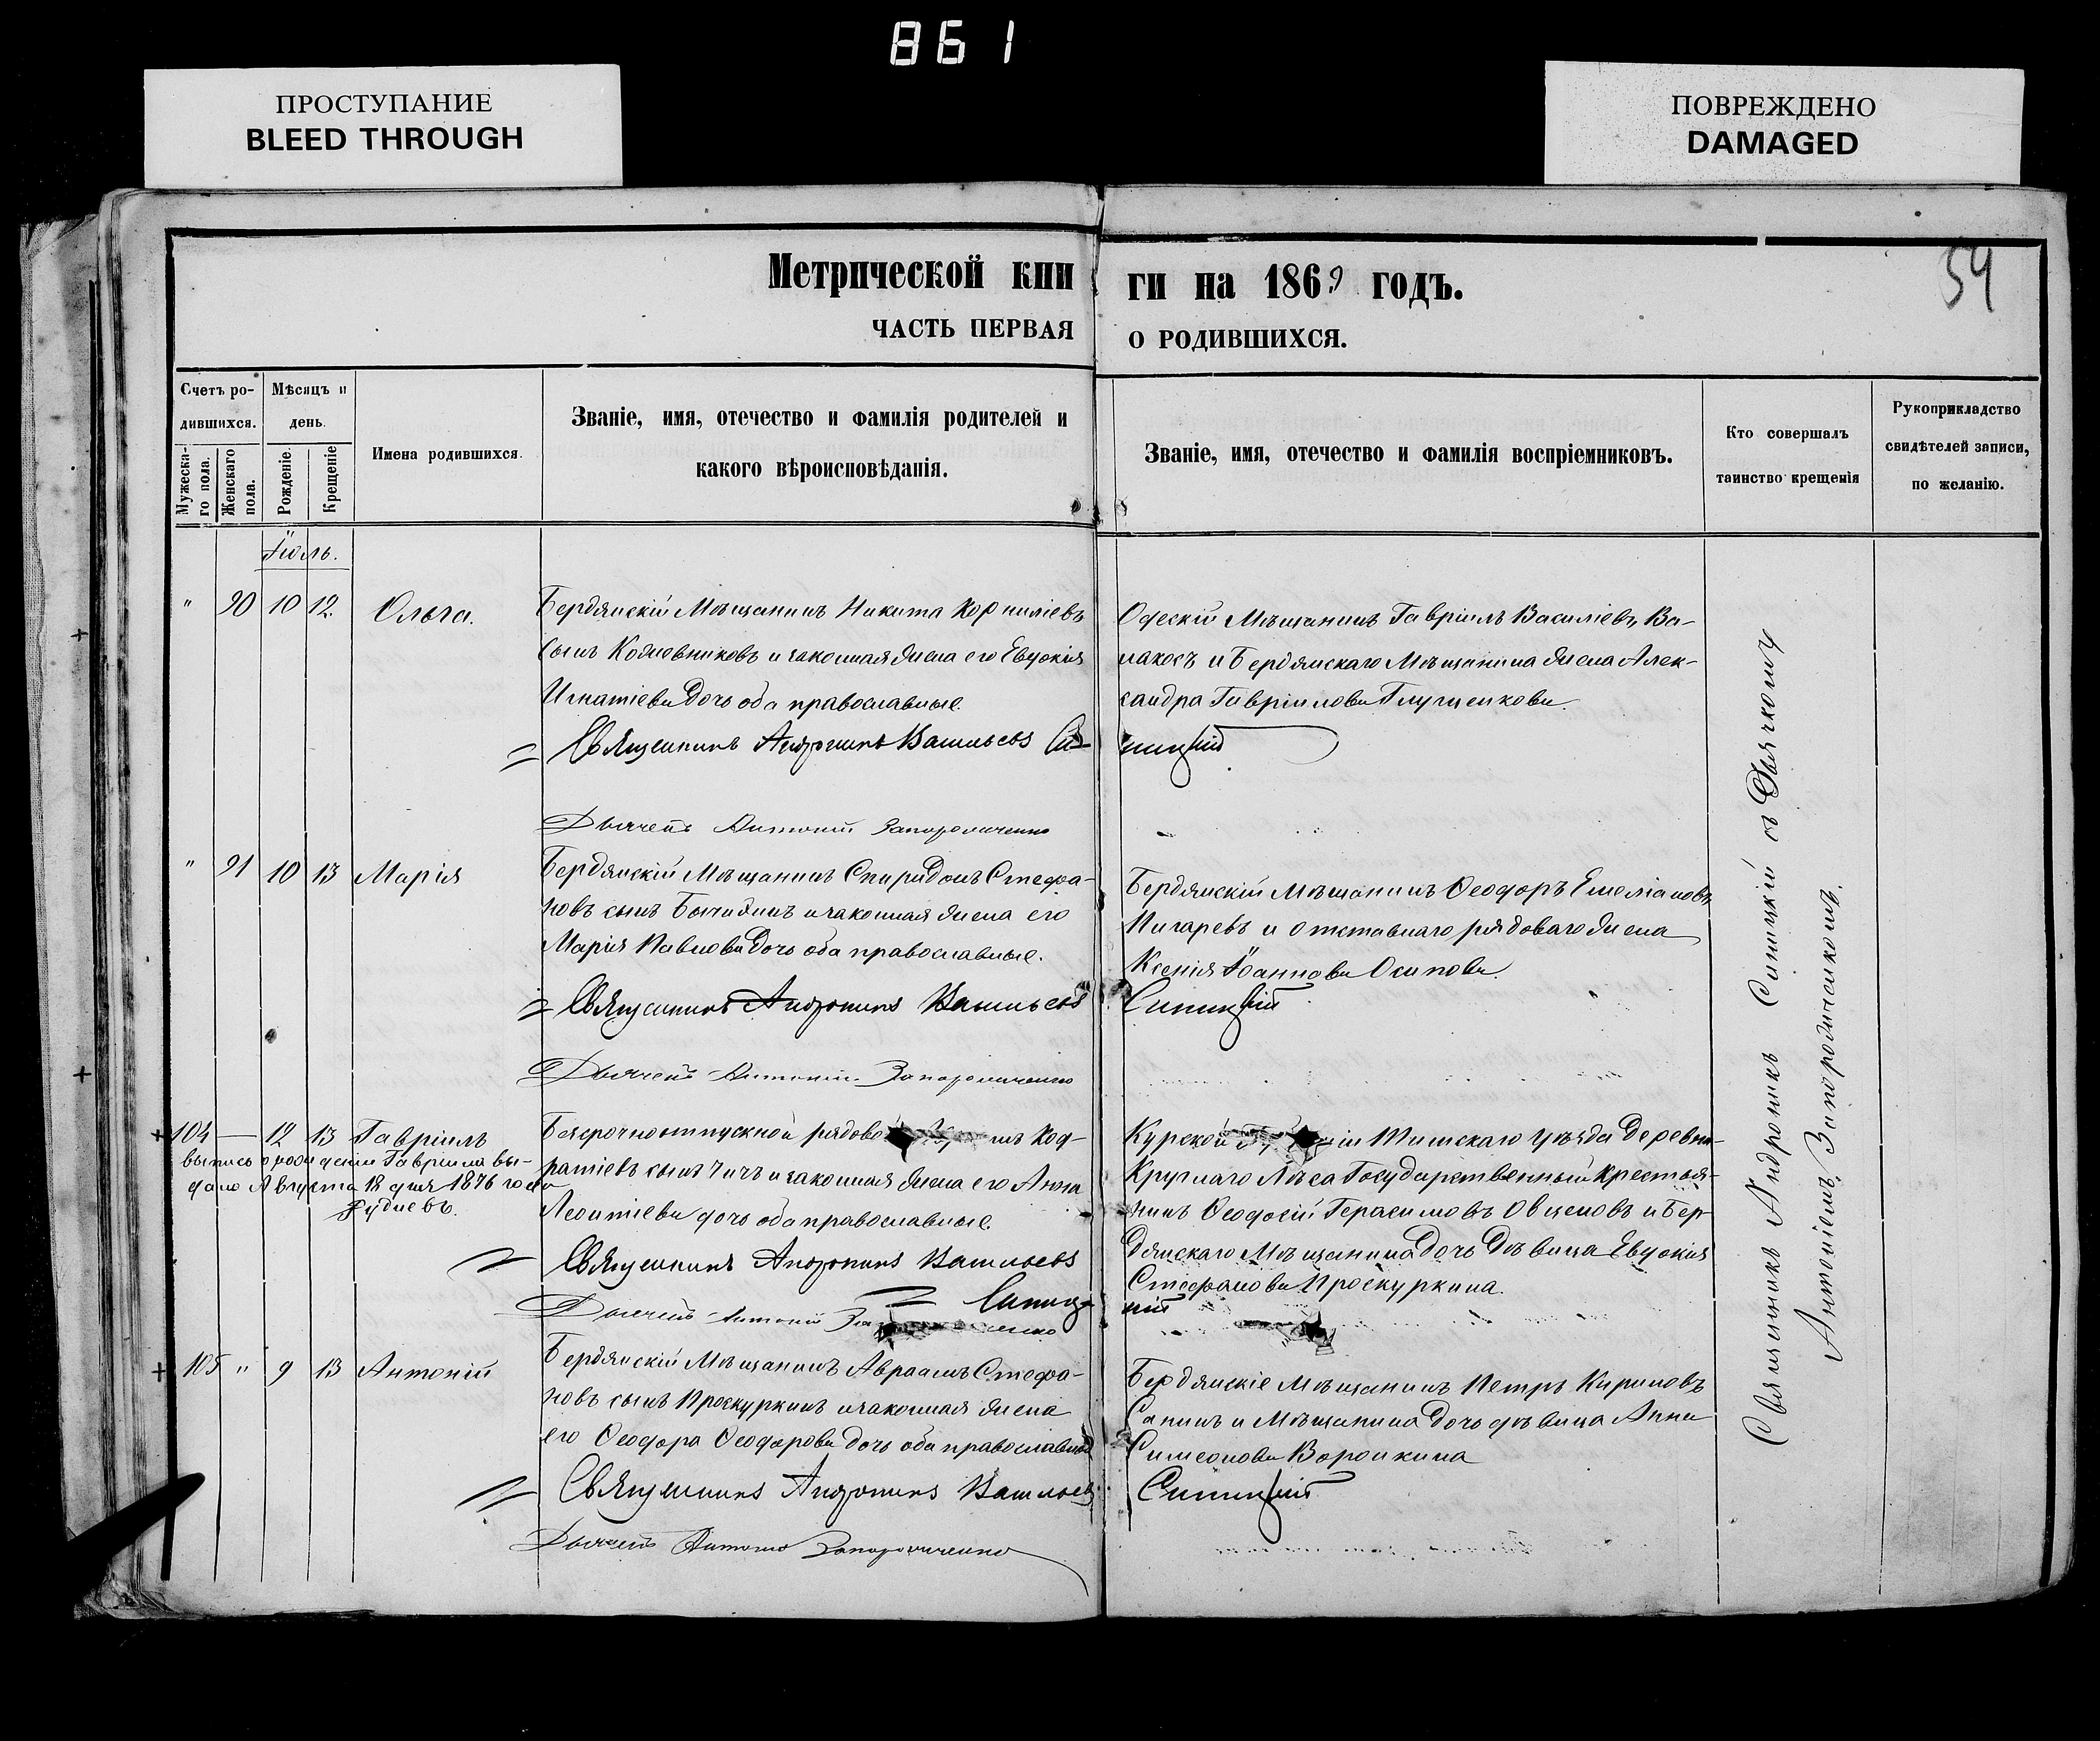 861
ПРОСТУПАНИЕ
BLEED THROUGH
ПОВРЕЖДЕНО
DAMAGED
54
Метрической кни ги на 1869 годъ.
ЧАСТЬ ПЕРВАЯ О РОДИВШИХСЯ.
Счетъ ро-
дившихся.
Мужеска-
го пола.
Женскаго
пола.
Мѣсяцъ и
день.
Рожденіе.
Крещеніе
Имена родившихся.
Званіе, имя, отечество и фамилія родителей и
какого вѣроисповѣданія.
Званіе, имя, отечество и фамилія воспріемниковъ.
Кто совершалъ
таинство крещенія
Рукоприкладство
свидѣтелей записи,
по желанію.
Іюль.
" 90 10 12. Ольга.
Бердянскій Мѣщанинъ Никита Корниліевъ
сынъ и законная жена его Евдокія
Игнатіева дочь оба православные.
Одескій Мѣщанинъ Гавріилъ Василіевъ Ва-
и Бердянскаго Мѣщанина жена Алек-
сандра Гавріилова Глущенкова.
Священникъ Андроникъ Васильевъ Си- ницкій
Дьячекъ Антоній Запорожченко
" 91 10 13 Марія
Бердянскій Мѣщанинъ Спиридонъ Стефа-
новъ сынъ и законная жена его
Марія Павлова дочь оба православные.
Бердянскій Мѣщанинъ Ѳеодоръ Емеліановъ
Пигаревъ и отставнаго рядоваго жена
Ксенія Іоаннова Осипова.
Священникъ Андроникъ Васильевъ Синицкій
Дьячекъ Антоній Запорожченко
+ 104 — 12 13 Гавріилъ
выпись о рожденіи Гавріила вы-
дана Августа 18 дня 1876 года
Рудневъ.
Безсрочноотпускной рядово Код-
ратіевъ сынъ Чичъ и законная жена его Анна
Леонтіева дочь оба православные.
Курской Тимскаго уѣзда деревни
Круглаго Лѣса Государственный крестья-
нинъ Ѳеодосій Герасимовъ Овценовъ и Бер-
дянскаго Мѣщанина дочь дѣвица Евдокія
Стефанова Проскуркина.
Священникъ Андроникъ Васильевъ
Синиц- кій
Дьячекъ Антоній
+ 105 " 9 13 Антоній
Бердянскій Мѣщанинъ Авраамъ Стефа-
новъ сынъ Проскуркинъ и законная жена
его Ѳеодора Ѳеодорова дочь оба православные
Бердянскіе Мѣщанинъ Петръ Кириловъ
Сапинъ и Мѣщанина дочь дѣвица Анна
Симеонова Воронкина
Священникъ Андроникъ Васильевъ Синицкій
Дьячекъ Антоній Запорожченко
Священникъ Андроникъ Синицкій съ Дьячкомъ
Антоніемъ Запорожченкомъ.